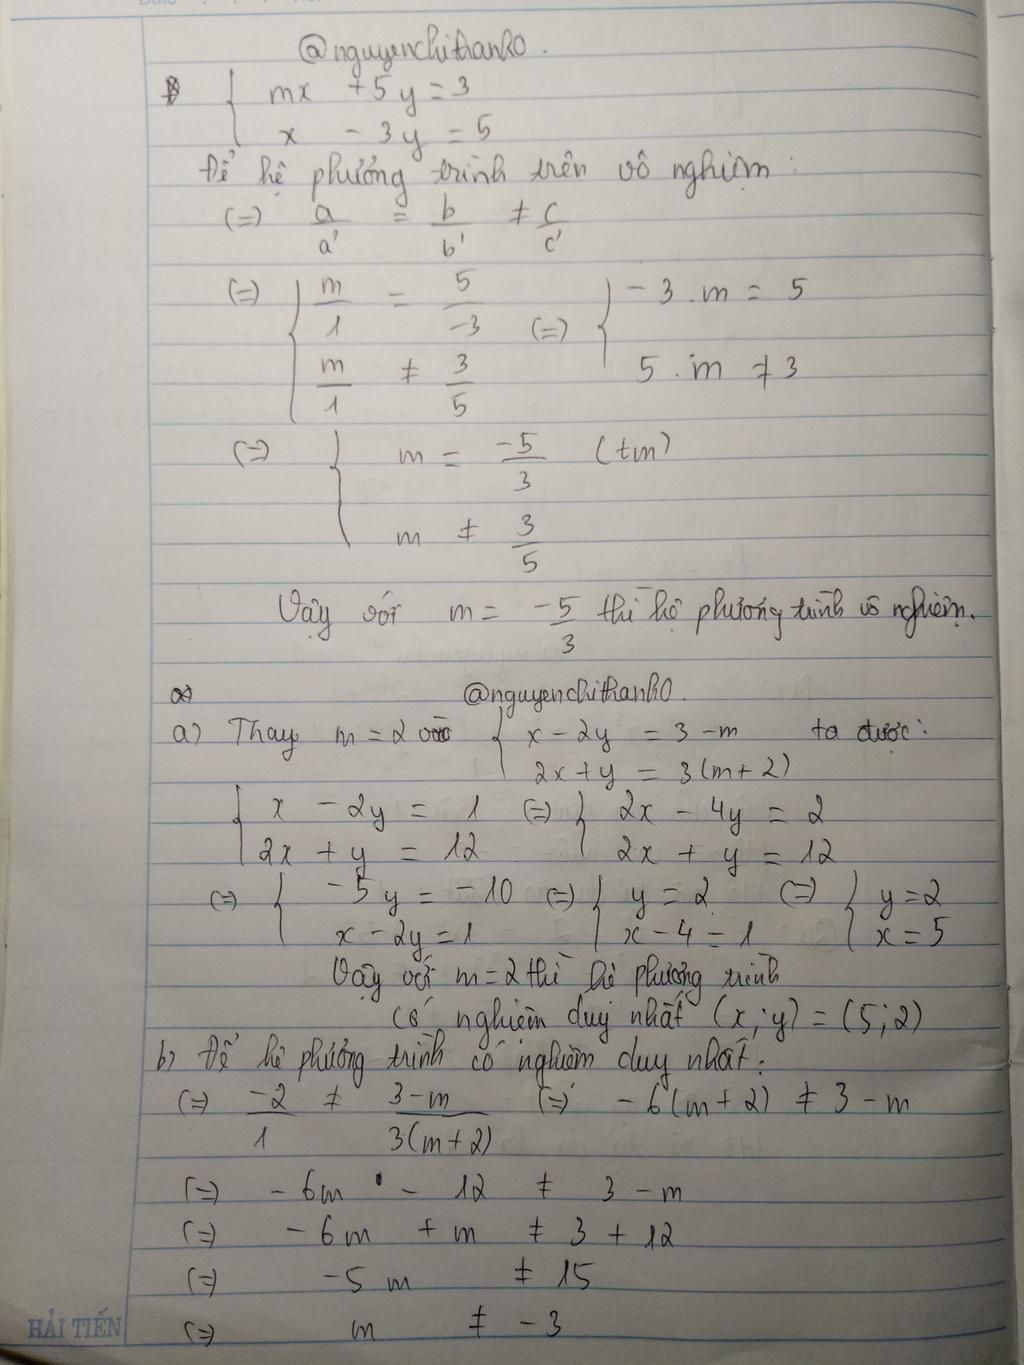 @nguyenchithanh0.
{ mx + 5y = 3
x - 3y = 5
Để hệ phương trình trên vô nghiệm:
(=) a/a' = b/b' ≠ c/c'
(=) { m/1 = 5/-3 (=) { -3.m = 5
m/1 ≠ 3/5 5.m ≠ 3
(=) { m = -5/3 (tm)
m ≠ 3/5
Vậy với m = -5/3 thì hệ phương trình vô nghiệm.
@nguyenchithanh0.
a) Thay m = 2 vào { x - 2y = 3 - m ta được:
2x + y = 3(m+2)
{ x - 2y = 1 (=) { 2x - 4y = 2
2x + y = 12 2x + y = 12
(=) { -5y = -10 (=) { y = 2 (=) { y = 2
x - 2y = 1 x - 4 = 1 x = 5
Vậy với m = 2 thì hệ phương trình
có nghiệm duy nhất (x;y) = (5;2)
b) Để hệ phương trình có nghiệm duy nhất:
(=) -2/1 ≠ 3-m/3(m+2) (=) -6(m+2) ≠ 3 - m
(=) -6m - 12 ≠ 3 - m
(=) -6m + m ≠ 3 + 12
(=) -5m ≠ 15
(=) m ≠ -3
HẢI TIẾN